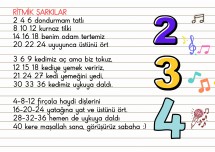 RİTMİK ŞARKILAR
2 4 6 dondurmam tatlı
8 10 12 kurnaz tilki
14 16 18 benim adam tertemiz
20 22 24 uyuyunca üstünü ört
3 6 9 kedimiz aç ama biz tokuz,
12 15 18 kediye yemek veririz,
21 24 27 kedi yemeğini yedi,
30 33 36 kedimiz uykuya daldı.
4-8-12 fırçala haydi dişlerini
16-20-24 yatağına yat ve üstünü ört.
28-32-36 hemen de uykuya daldı
40 kere maşallah sana, görüşürüz sabaha :)
2
3
4